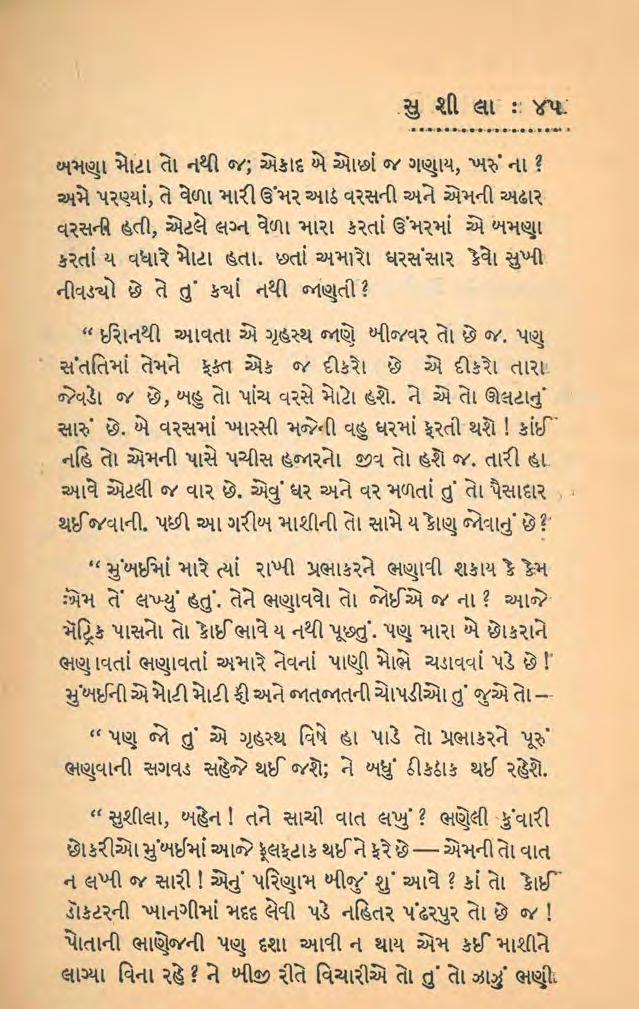 સુ શી લા : ૪૫
બમણા મોટા તો નથી જ; એકાદ બે ઓછાં જ ગણાય, ખરું ના ?
અમે પરણ્યાં, તે વેળા મારી ઉંમર આઠ વરસની અને એમની અઢાર
વરસની હતી, એટલે લગ્ન વેળા મારા કરતાં ઉંમરમાં એ બમણા
કરતાં ય વધારે મોટા હતા. છતાં અમારો ઘરસંસાર કેવો સુખી
નીવડ્યો છે તે તું ક્યાં નથી જાણતી ?
“ ઈરાનથી આવતા એ ગૃહસ્થ જાણે બીજવર તો છે જ. પણ
સંતતિમાં તેમને ફક્ત એક જ દીકરો છે એ દીકરો તારા
જેવડો જ છે, બહુ તો પાંચ વરસે મોટો હશે. ને એ તો ઊલટાનું
સારું છે. બે વરસમાં ખાસ્સી મજેની વહુ ઘરમાં ફરતી થશે ! કાંઈ
નહિ તો એમની પાસે પચીસ હજારનો જીવ તો હશે જ. તારી હા
આવે એટલી જ વાર છે. એવું ઘર અને વર મળતાં તું તો પૈસાદાર
થઈ જવાની. પછી આ ગરીબ માશીની તો સામે ય કોણ જોવાનું છે ?
“ મુંબઈમાં મારે ત્યાં રાખી પ્રભાકરને ભણાવી શકાય કે કેમ
એમ તેં લખ્યું હતું. તેને ભણાવવો તો જોઈએ જ ના ? આજે
મૅટ્રિક પાસનો તો કોઈ ભાવે ય નથી પૂછતું. પણ મારા બે છોકરાને
ભણાવતાં ભણાવતાં અમારે નેવનાં પાણી મોભે ચડાવવાં પડે છે !
મુંબઈની એ મોટી મોટી ફી અને જાતજાતની ચોપડીઓ તું જુએ તો —
“ પણ જો તું એ ગૃહસ્થ વિષે હા પાડે તો પ્રભાકરને પૂરું
ભણવાની સગવડ સહેજે થઈ જશે; ને બધું ઠીકઠાક થઈ રહેશે.
“ સુશીલા, બહેન ! તને સાચી વાત લખું ? ભણેલી કુંવારી
છોકરીઓ મુંબઈમાં આજે ફૂલફટાક થઈ ને ફરે છે — એમની તો વાત
ન લખી જ સારી ! એનું પરિણામ બીજું શું આવે ? કાં તો કોઈ
ડૉકટરની ખાનગીમાં મદદ લેવી પડે નહિતર પંઢરપુર તો છે જ !
પોતાની ભાણેજની પણ દશા આવી ન થાય એમ કઈ માશીને
લાગ્યા વિના રહે ? ને બીજી રીતે વિચારીએ તો તું તો ઝાઝું ભણી